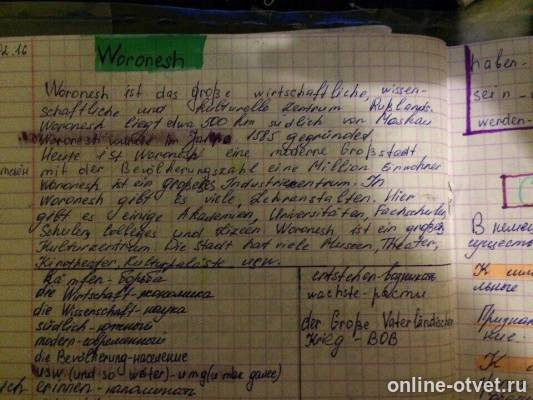 02.16
Woronesh
Woronesh ist das große wirtschaftliche, wissen-
schaftliche und kulturelle Zentrum Rußlands.
Woronesh liegt etwa 500 km südlich von Moskau
Woronesh wurde im Jahre 1585 gegründet.
Heute ist Woronesh eine moderne Großstadt
mit der Bevölkerungszahl eine Million Einwohner
Woronesh ist ein großes Industriezentrum. In
Woronesh gibt es viele Lehranstalten. Hier
gibt es einige Akademien, Universitäten, Fachschulen,
Schulen, Colleges und Lizeen Woronesh, ist ein großes
Kulturzentrum Die Stadt hat viele Museen, Theater,
Kinotheater, Kulturpaläste usw.
Kämfen - борьба
die Wirtschaft - экономика
die Wissenschaft - наука
südlich - южный
modern - современный
die Bevölkerung - население
usw. (und so weiter) - и т д (и так далее)
erinnen - напоминать
entstehen - возникать
wachste - расти
der Große Vaterländische
Krieg - ВОВ
haben -
sein -
werden -
В немец
существ
К
льные
Признак
ние.
К
online-otvet.ru